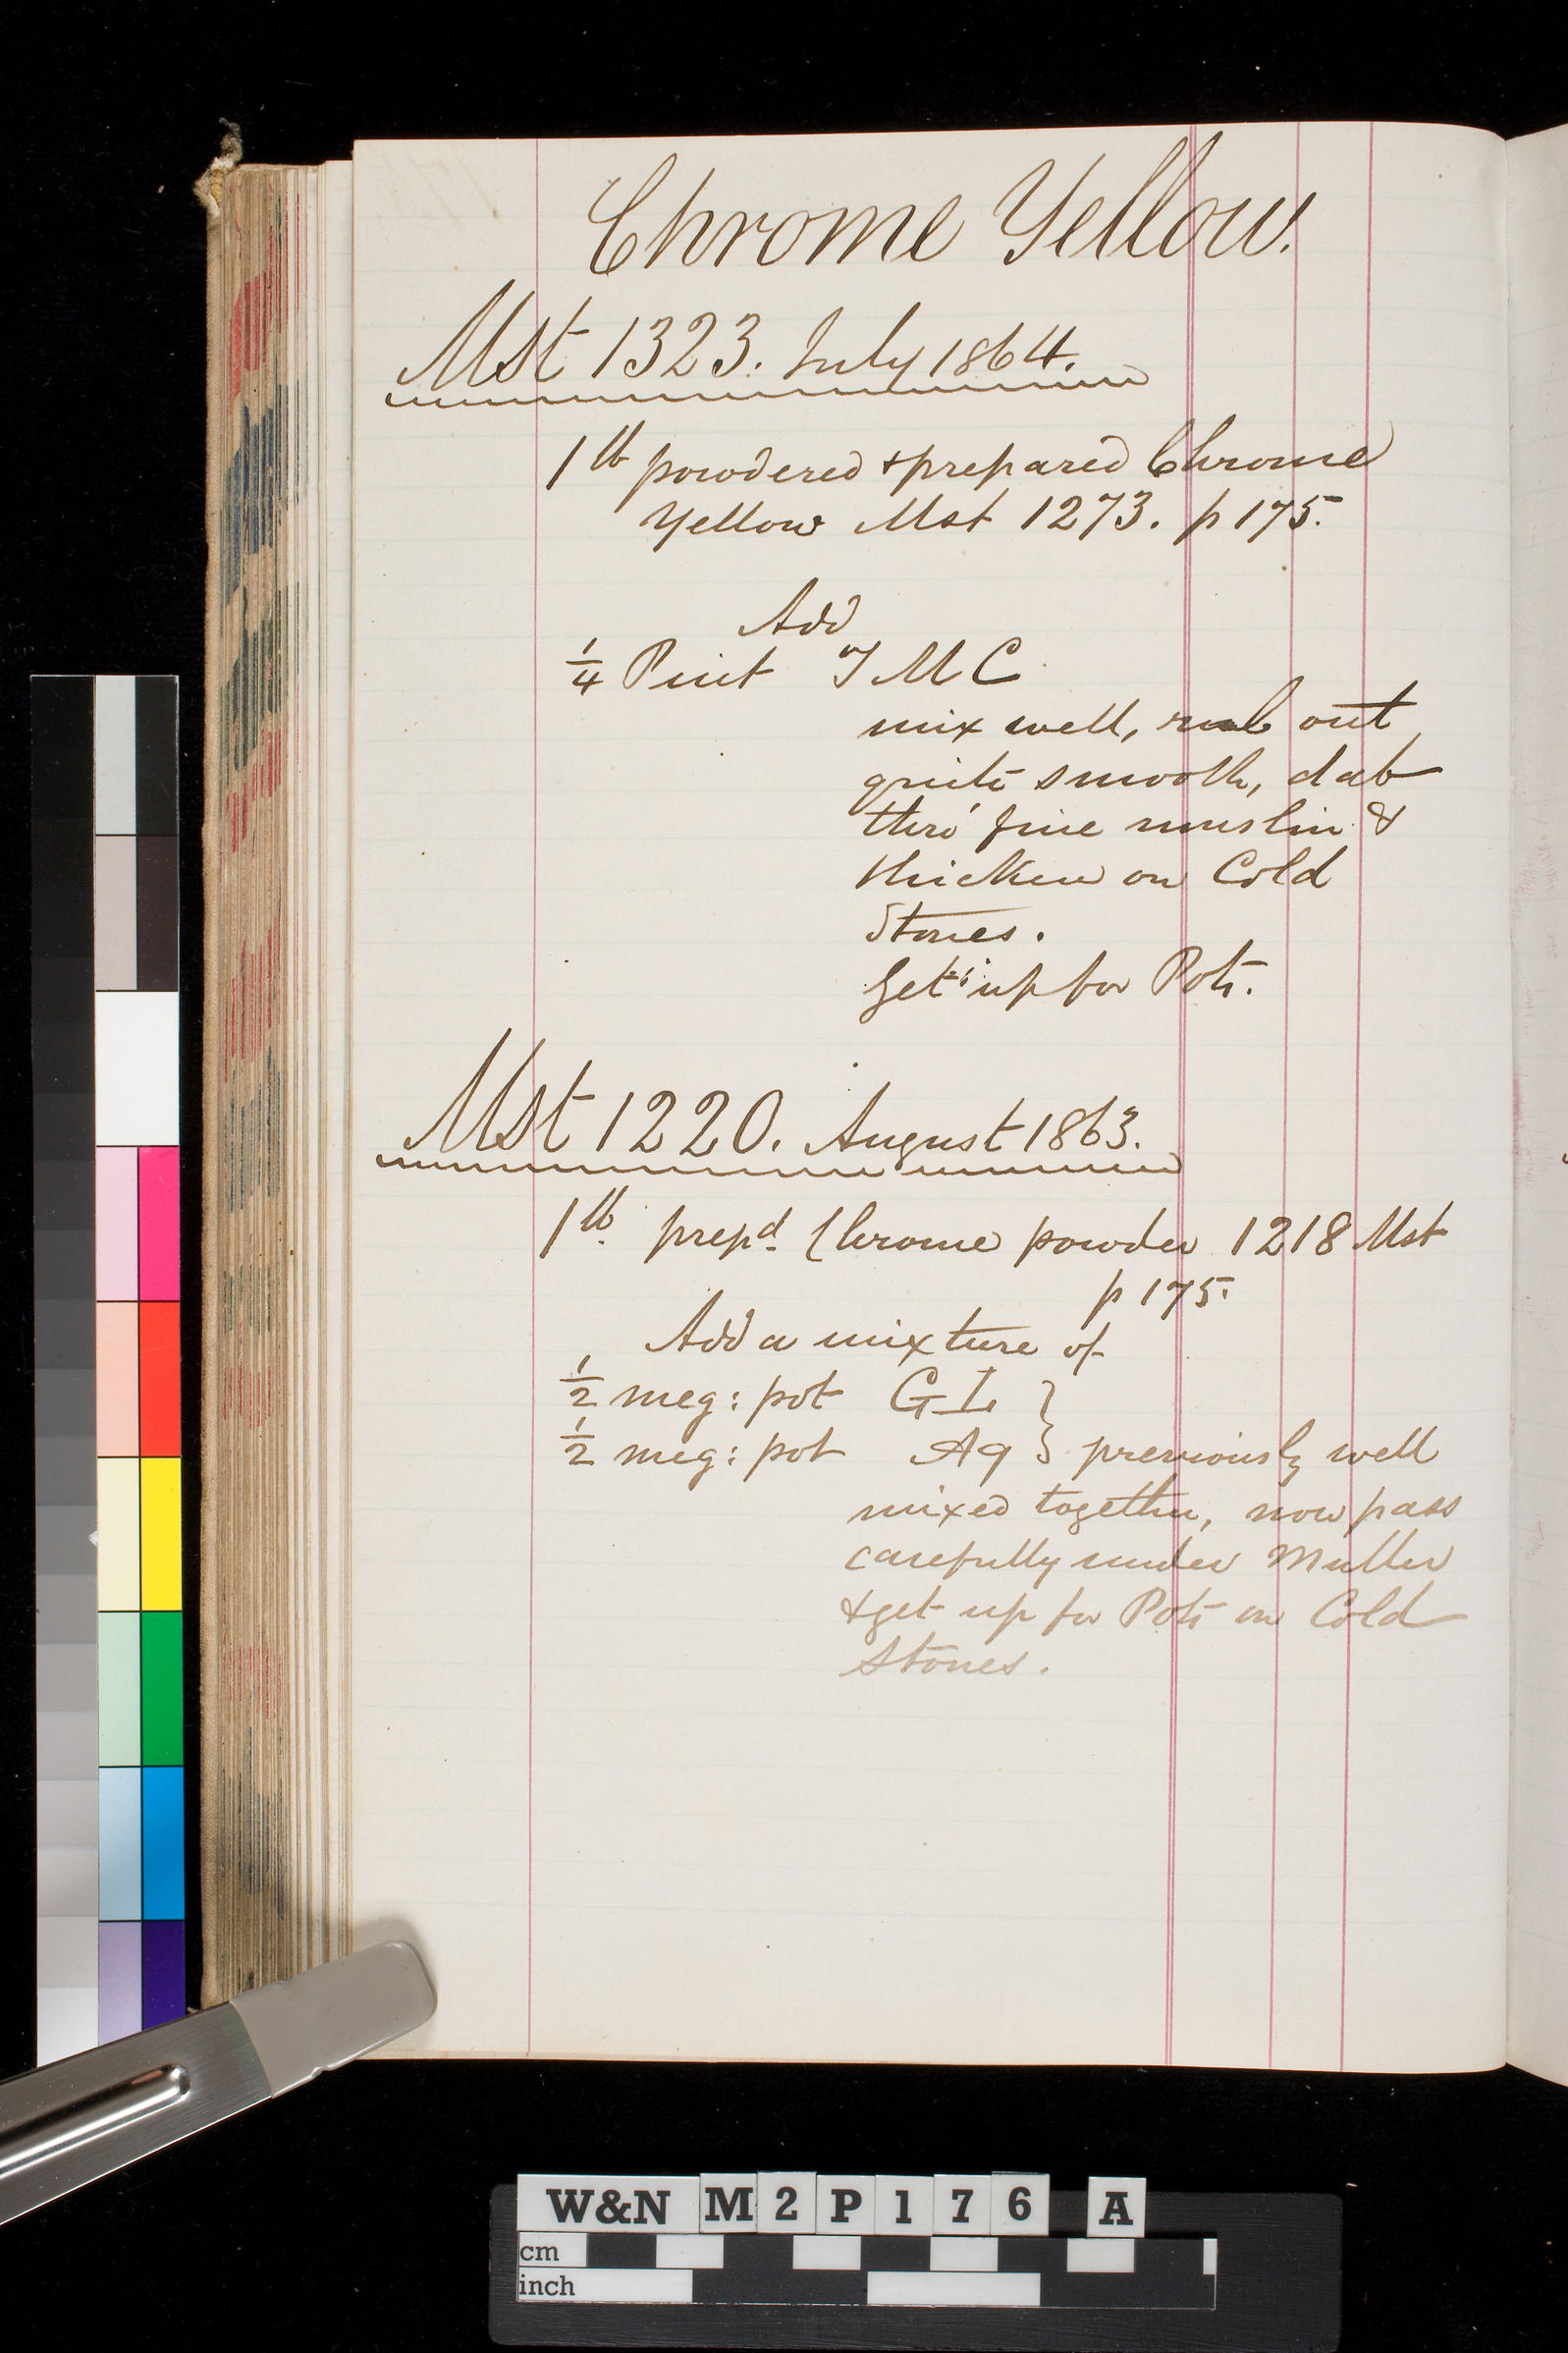 Chrome Yellow.
Mst 1323. July 1864.
1 lb powdered & prepared Chrome
Yellow Mst 1273. p 175.
Add
1/4 Pint TMC
mix well, rub out
quite smooth, dab
thro' fine muslin &
thicken on Cold
Stones.
Get up for Pots.
Mst 1220. August 1863.
1 lb. prepd. Chrome powder 1218 Mst
p 175.
Add a mixture of
1/2 meg: pot GL }
1/2 meg: pot Aq } previously well
mixed together, now pass
carefully under Muller
& get up for Pots on Cold
Stones.
W&N M2P176 A
cm
inch